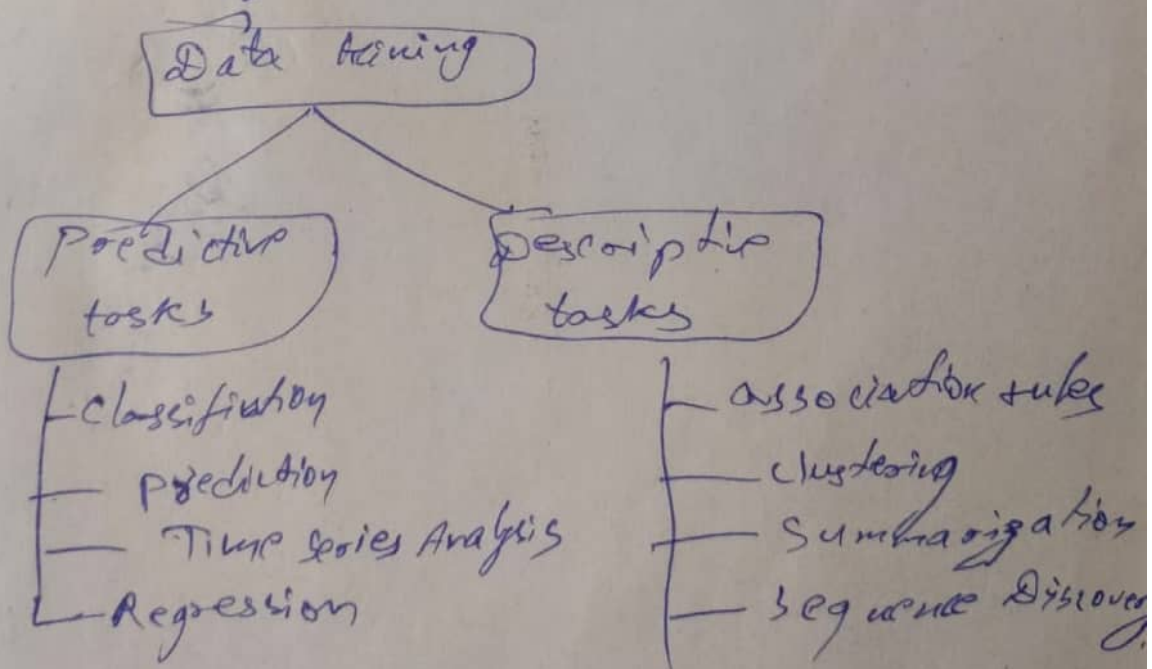 Data mining
Predictive
tasks
Descriptive
tasks
Classification
Prediction
Time Series Analysis
Regression
association rules
clustering
Summarization
Sequence Discovery